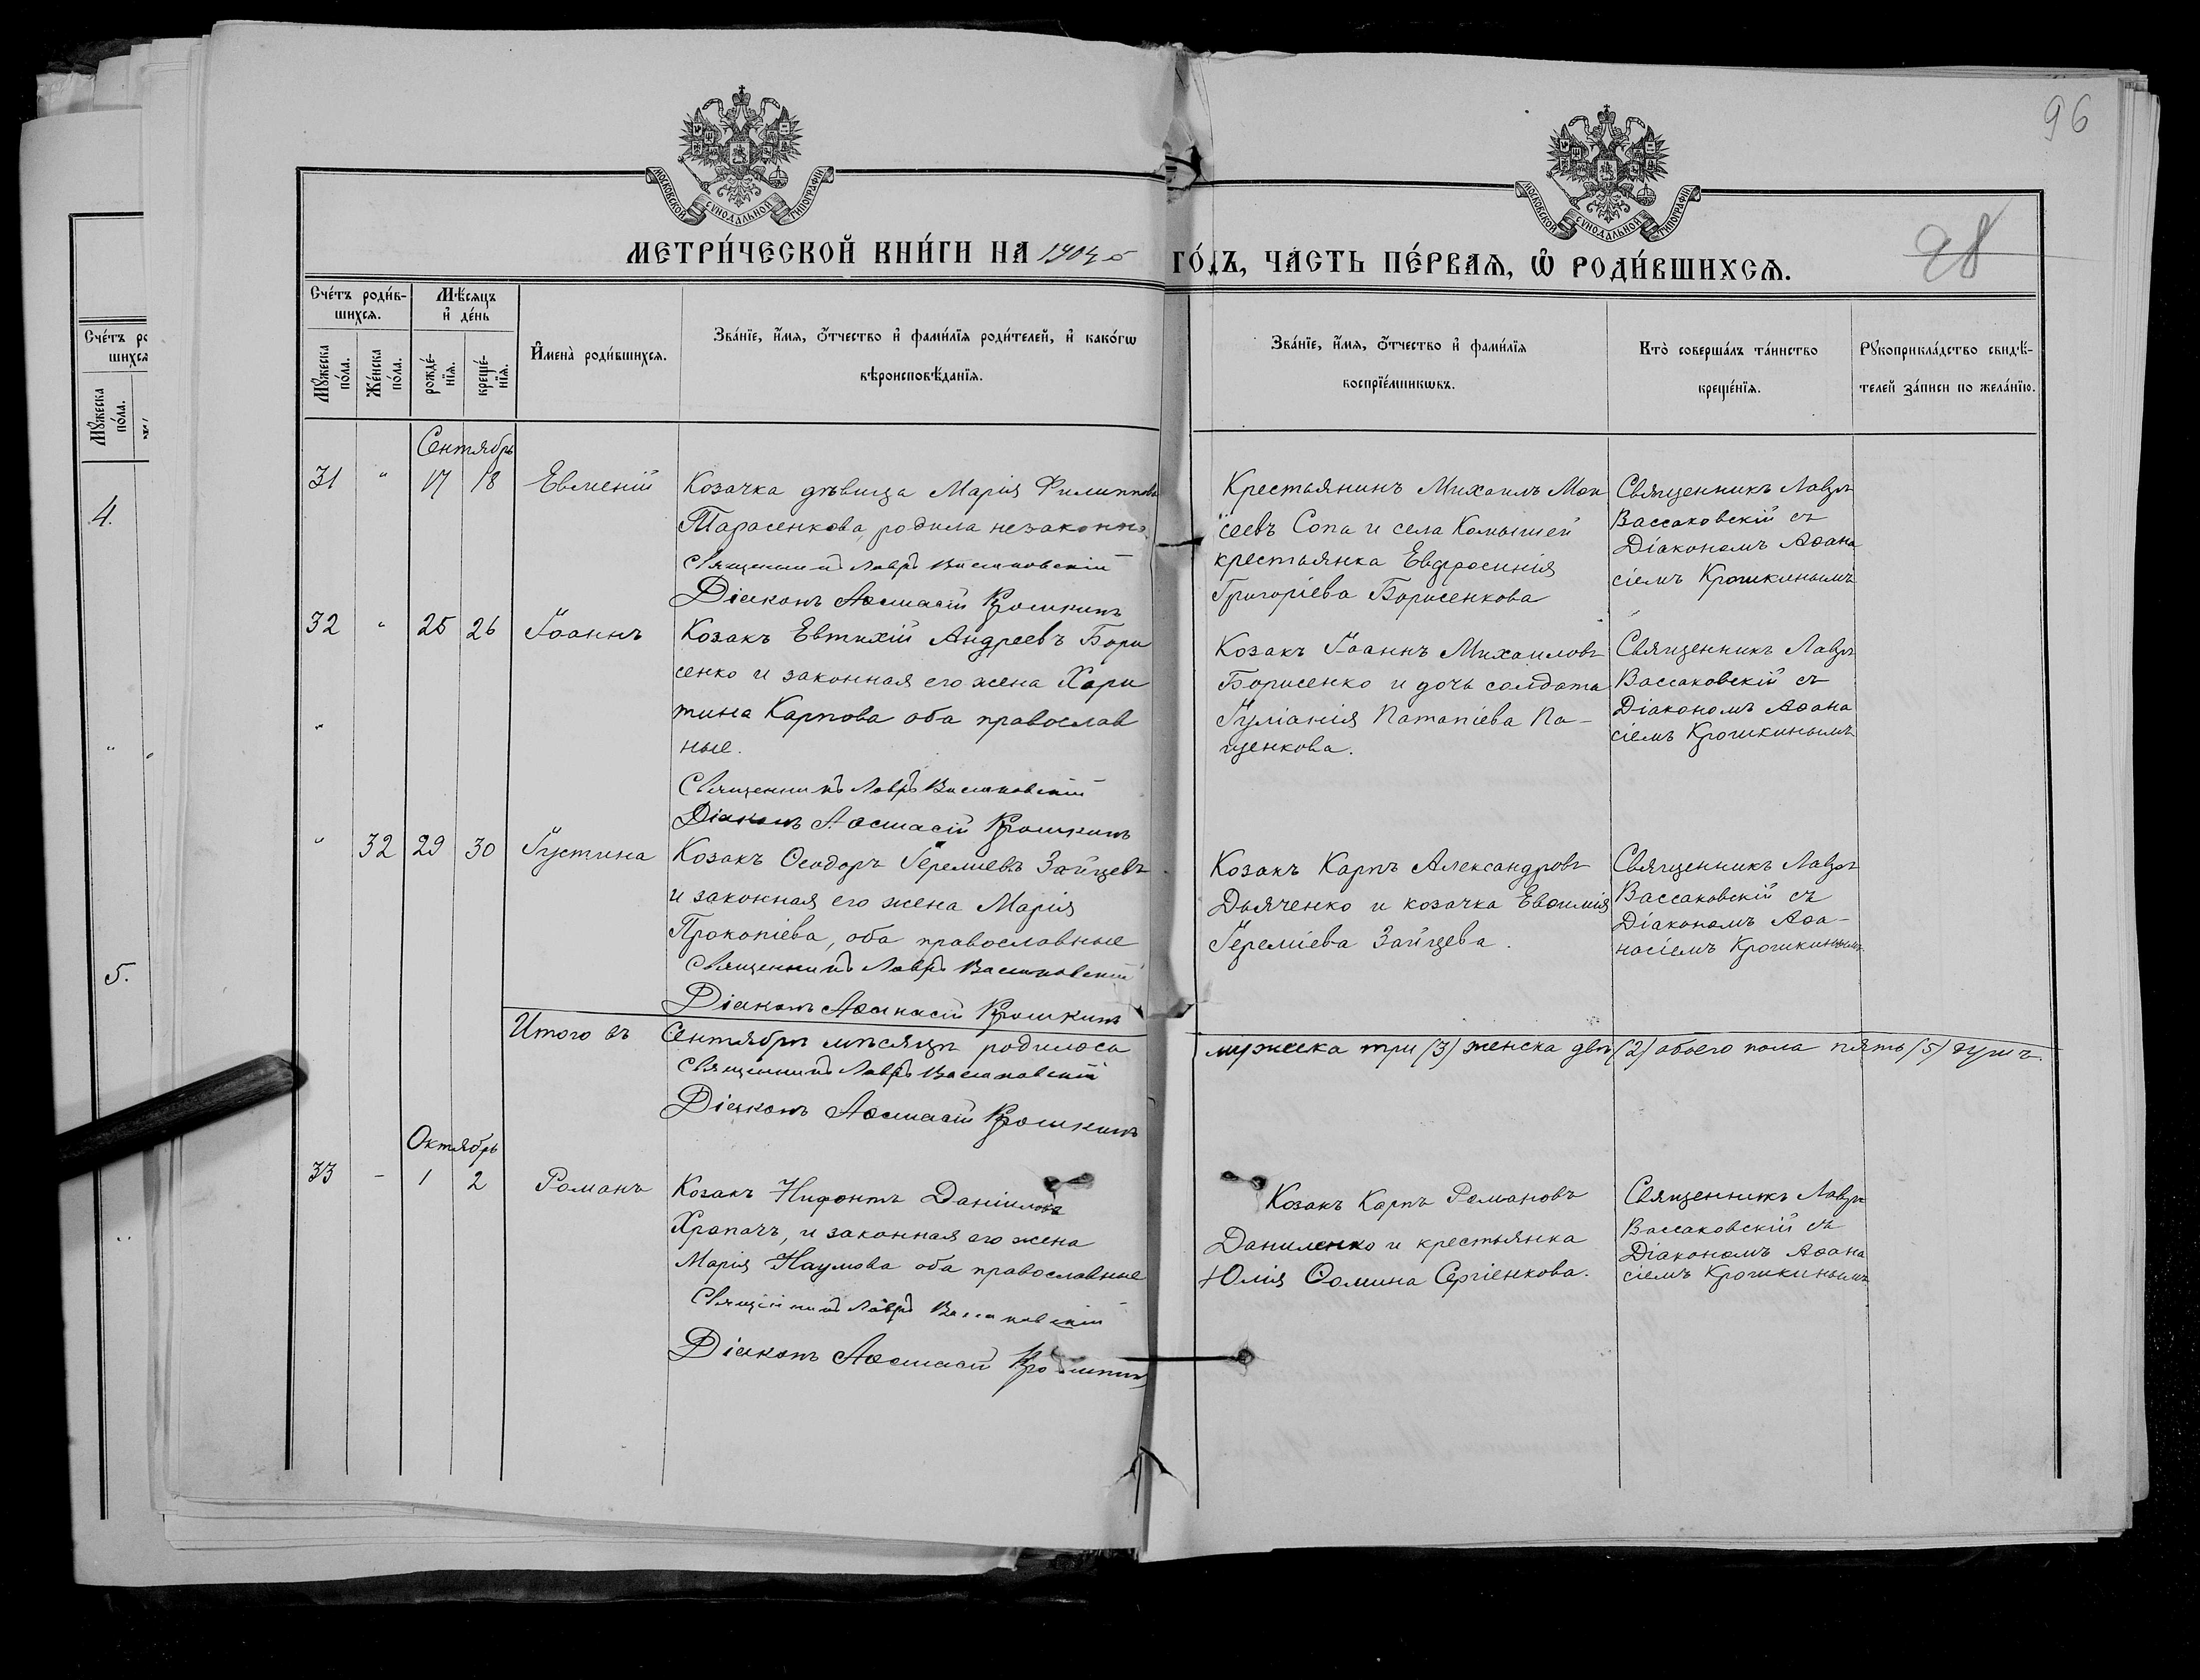 96
98
МОСКОВСКОЙ СѴНОДАЛЬНОЙ ТИПОГРАФІИ
МОСКОВСКОЙ СѴНОДАЛЬНОЙ ТИПОГРАФІИ
МЕТРИ́ЧЕСКОЙ КНИ́ГИ НА 1904 ГО́ДЪ, ЧАСТЬ ПЕ́РВАЯ, Ѡ РОДИ́ВШИХСЯ.
Сче́тъ роди́в-
шихся.
Мѣ́сяцъ
и де́нь
Му́жеска
по́ла.
Же́нска
по́ла.
рожде́-
нїя.
креще́-
нїя.
Имена̀ роди́вшихся.
Зва́нїе, и́мя, о́тчество и фами́лїя роди́телей, и како́гѡ
вѣроисповѣ́данїя.
Зва́нїе, и́мя, о́тчество и фами́лїя
воспрїе́мникѡвъ.
Кто̀ соверша́лъ та́инство
креще́нїя.
Рукоприкла́дство свидѣ́-
телей за́писи по жела́нїю.
Сче́тъ ро
шихся
Му́жеска
по́ла.
4.
5.
Сентябрь
31 " 17 18 Евмений
Козачка дѣвица Марія Филиппова
Тарасенкова, родила незаконно.
Священникъ Лавръ Вассаковскій
Діаконъ Аѳанасій Крошкинъ
Крестьянинъ Михаилъ Мои
сеевъ Сопа и села Комышей
крестьянка Евфросинія
Григоріева Борисенкова
Священникъ Лавръ
Вассаковскій съ
Діакономъ Аѳана
сіемъ Крошкинымъ
32 " 25 26 Іоаннъ
Козакъ Евтихій Андреевъ Бори
сенко и законная его жена Хари
тина Карпова оба православ
ные.
Священникъ Лавръ Вассаковскій
Діаконъ Аѳанасій Крошкинъ
Козакъ Іоаннъ Михаиловъ
Борисенко и дочь солдата
Іуліанія Потапіева Па-
щенкова.
Священникъ Лавръ
Вассаковскій съ
Діакономъ Аѳана
сіемъ Крошкинымъ
" 32 29 30 Іустина
Козакъ Ѳеодоръ Іереміевъ Зайцевъ
и законная его жена Марія
Прокопіева, оба православные
Священникъ Лавръ Вассаковскій
Діаконъ Аѳанасій Крошкинъ
Козакъ Карпъ Александровъ
Дьяченко и козачка Евѳимія
Іереміева Зайцева.
Священникъ Лавръ
Вассаковскій съ
Діакономъ Аѳа-
насіемъ Крошкинымъ
Итого въ Сентябрѣ мѣсяцѣ родилось мужеска три (3) женска двѣ (2) обоего пола пять (5) душъ.
Священникъ Лавръ Вассаковскій
Діаконъ Аѳанасій Крошкинъ
Октябрь
33 - 1 2 Романъ
Козакъ Нифонтъ Даніиловъ
Храпачъ, и законная его жена
Марія Наумова оба православные
Священникъ Лавръ Вассаковскій
Діаконъ Аѳанасій Крошкинъ
Козакъ Карпъ Романовъ
Даниленко и крестьянка
Юлія Ѳомина Сергіенкова.
Священникъ Лавръ
Вассаковскій съ
Діакономъ Аѳана
сіемъ Крошкинымъ